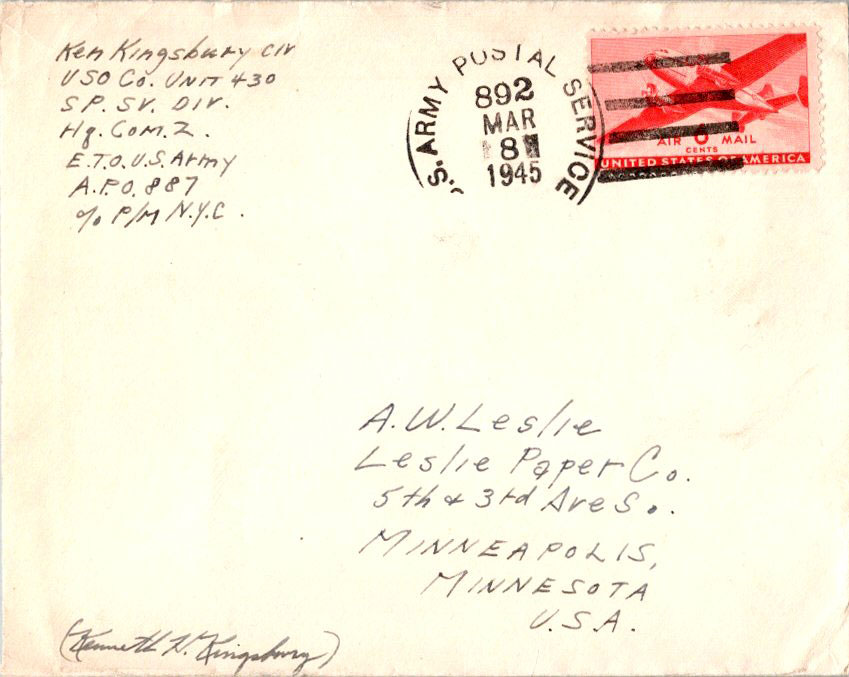 Ken Kingsbury CIV
USO Co. UNIT 430
SP. SV. DIV.
Hq. Com. Z.
E.T.O. U.S. Army
A.P.O. 887
% P/M N.Y.C.
U.S. ARMY POSTAL SERVICE
892
MAR
8
1945
AIR 6 MAIL
CENTS
UNITED STATES OF AMERICA
A.W. Leslie
Leslie Paper Co.
5th & 3rd Ave So.
MINNEAPOLIS,
MINNESOTA
U.S.A.
(Kenneth N. Kingsbury)